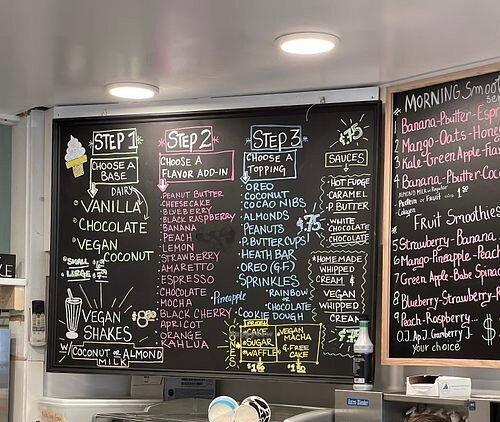 STEP 1
CHOOSE A
BASE
DAIRY
VANILLA
CHOCOLATE
VEGAN
COCONUT
SMALL
LARGE
VEGAN
SHAKES
W/ COCONUT OR ALMOND
MILK
STEP 2
CHOOSE A
FLAVOR ADD-IN
PEANUT BUTTER
CHEESECAKE
BLUEBERRY
BLACK RASPBERRY
BANANA
PEACH
LEMON
STRAWBERRY
AMARETTO
ESPRESSO
CHOCOLATE
MOCHA
BLACK CHERRY
APRICOT
ORANGE
KAHLUA
Pineapple
STEP 3
CHOOSE A
TOPPING
OREO
COCONUT
COCAO NIBS
ALMONDS
PEANUTS
P.BUTTER CUPS
HEATH BAR
OREO (G.F.)
SPRINKLES
"RAINBOW
OR
CHOCOLATE
COOKIE DOUGH
$.75
CONES
CAKE
SUGAR
WAFFLE
VEGAN
MACHA
G.FREE
CAKE
$.75
SAUCES
HOT FUDGE
CARAMEL
P BUTTER
WHITE
CHOCOLATE
CHOCOLATE
HOMEMADE
WHIPPED
CREAM &
VEGAN
WHIPPED
CREAM
MORNING Smoot
1 Banana-Pbutter-Espr
2 Mango-Oats-Hone
3 Kale-Green Apple-
4 Banana-Pbutter-Coc
Fruit Smoothies
5 Strawberry-Banana
6 Mango-Pineapple-Peach
7 Green Apple-Babe Spinac
8 Blueberry-Strawberry-R
9 Peach-Raspberry...
O.J. Ap.J. Cranberry J.
your choice
$